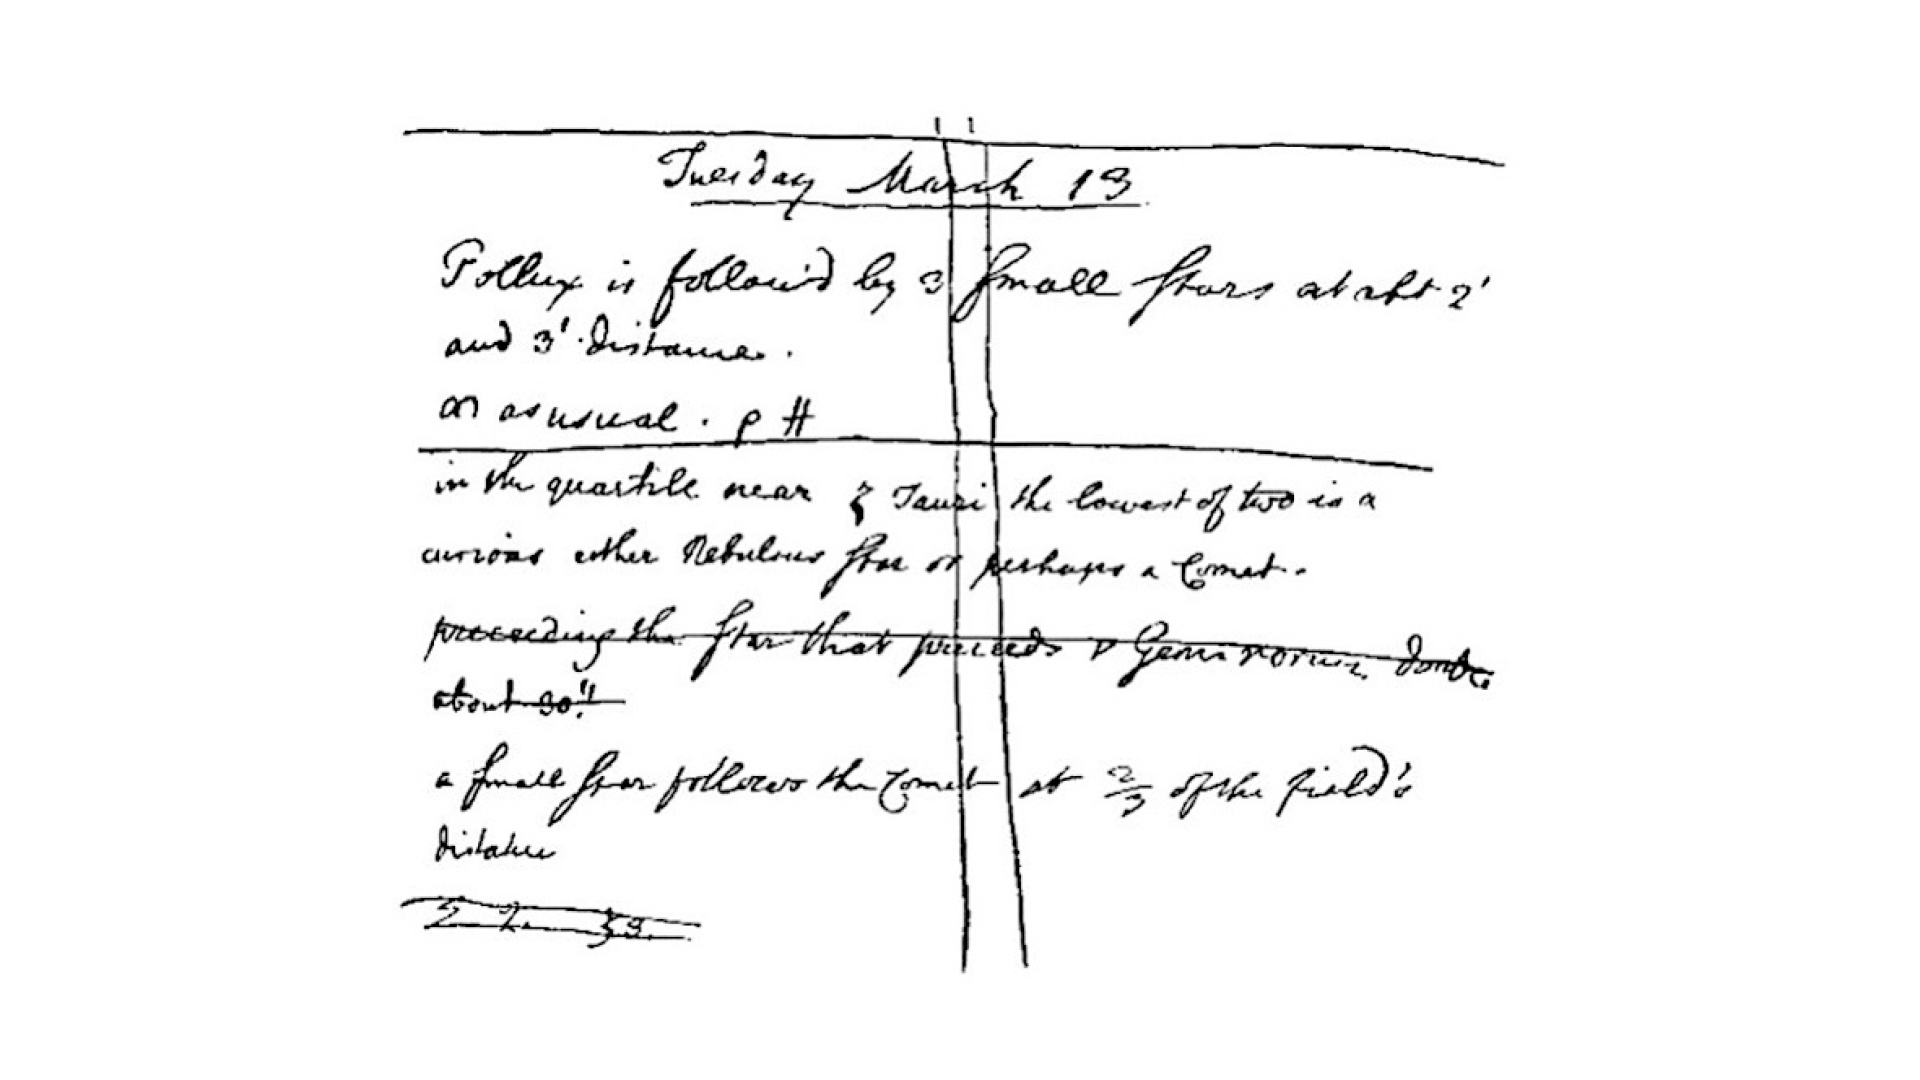 Tuesday March 13
Pollux is follow'd by 3 small stars at abt 2'
and 3' distance.
as usual. p #
in the quartile near ζ Tauri the lowest of two is a
curious either Nebulous star or perhaps a Comet.
preceeding the star that preceeds Geminorum
about 30"
a small star follows the Comet at 2/3 of the field's
distance